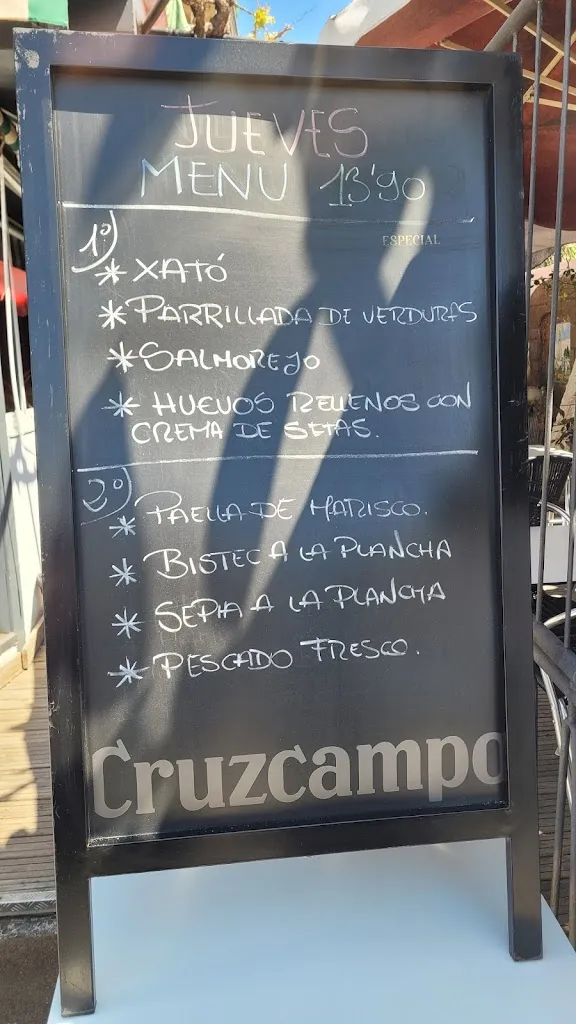 JUEVES
MENU 13'90
ESPECIAL
1º)
* XATÓ
* PARRILLADA DE VERDURAS
* SALMOREJO
* HUEVOS RELLENOS CON
CREMA DE SETAS.
2º)
* PAELLA DE MARISCO.
* BISTEC A LA PLANCHA
* SEPIA A LA PLANCHA
* PESCADO FRESCO.
Cruzcampo